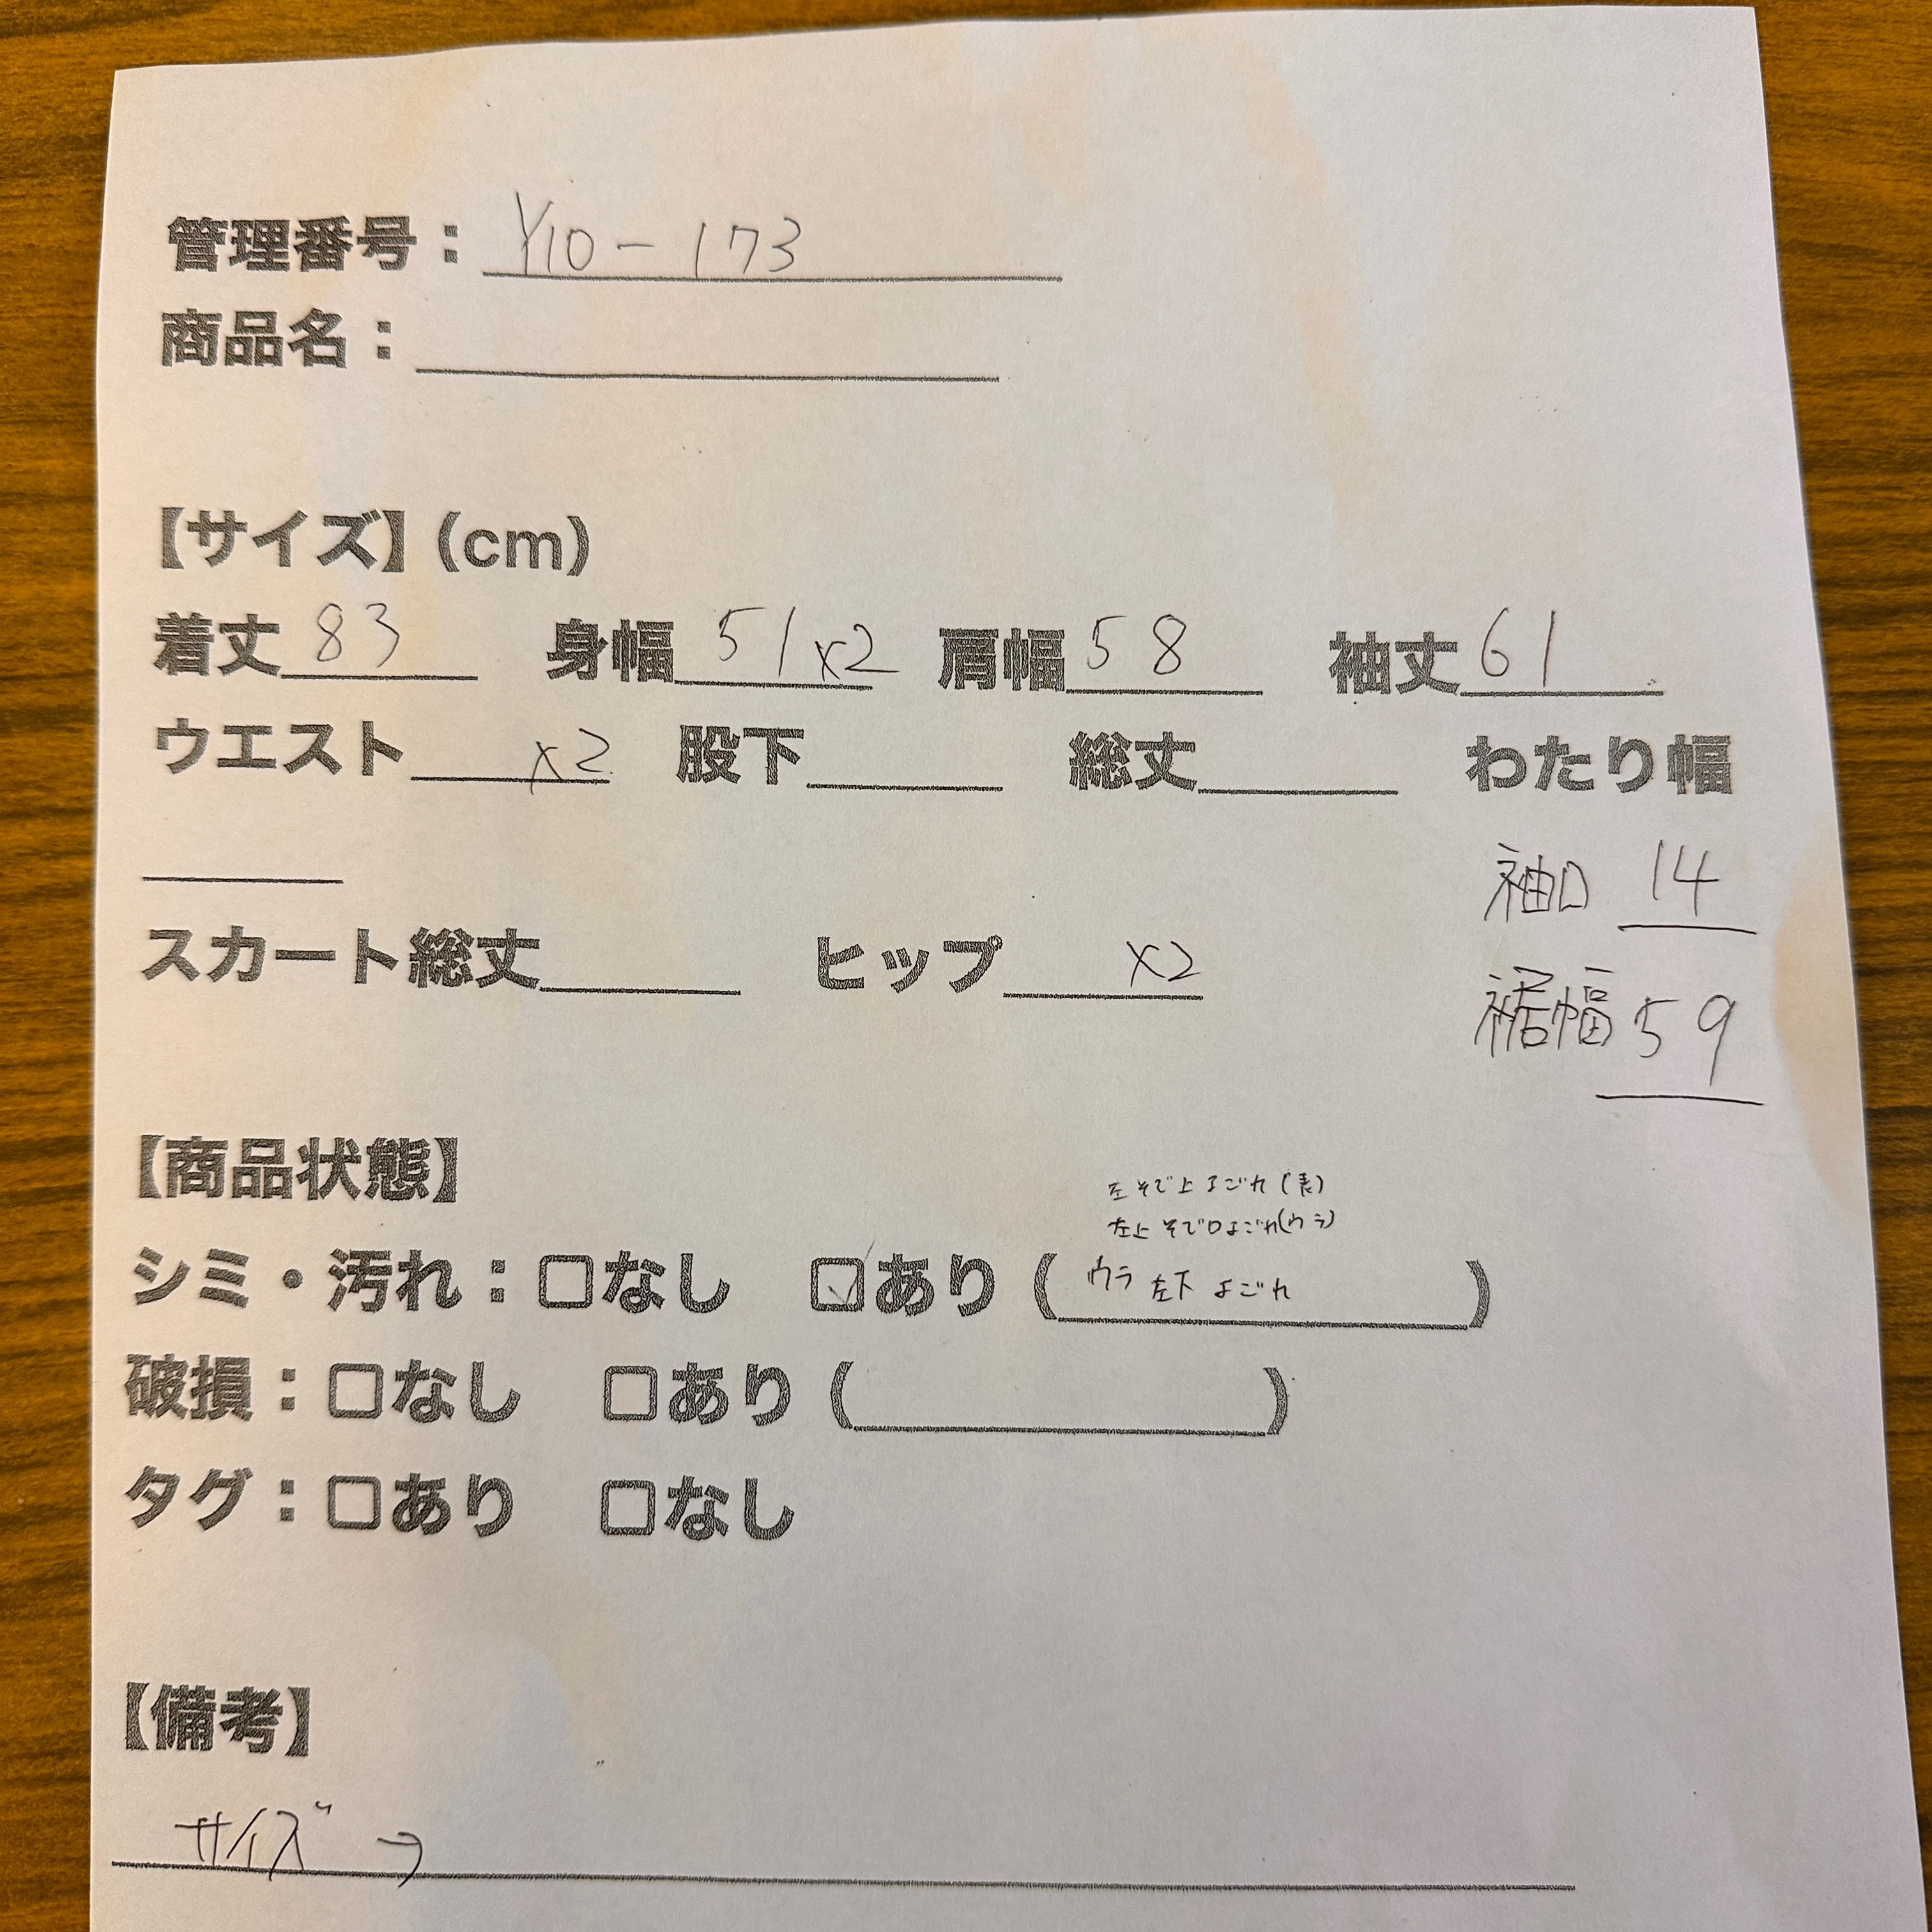 管理番号：Y10-173
商品名：
【サイズ】(cm)
着丈 83 身幅 51x2 肩幅 58 袖丈 61
ウエスト x2 股下 総丈 わたり幅
袖口 14
スカート総丈 ヒップ x2
裾幅 59
【商品状態】
左そで上よごれ(表)
左上そで口よごれ(ウラ)
シミ・汚れ：□なし ☑あり(ウラ 左下 よごれ)
破損：□なし □あり( )
タグ：□あり □なし
【備考】
サイズ→